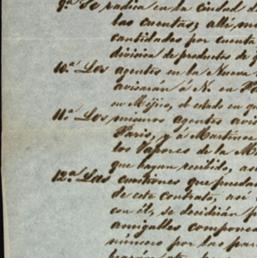 9ª Se radica en la Ciudad d
las cuentas; allí, m
cantidades por cuenta
division de productos de q
10ª Los agentes en la Nueva
avisarán á N. en P
en Méjico, el estado en qu
11ª Los mismos agentes avis
Paris, y á Martinez
los Vapores de la M
que hayan recibido, as
12ª Las cuestiones que puedan
de este contrato, asi
con él, se decidirán p
amigables compone
número por las par